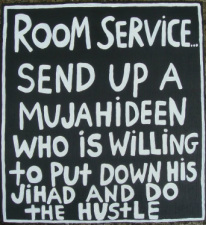 ROOM SERVICE...
SEND UP A
MUJAHiDEEN
WHO iS WiLLiNG
to PUt DOWN HiS
JiHAD AND DO
THE HUStLE